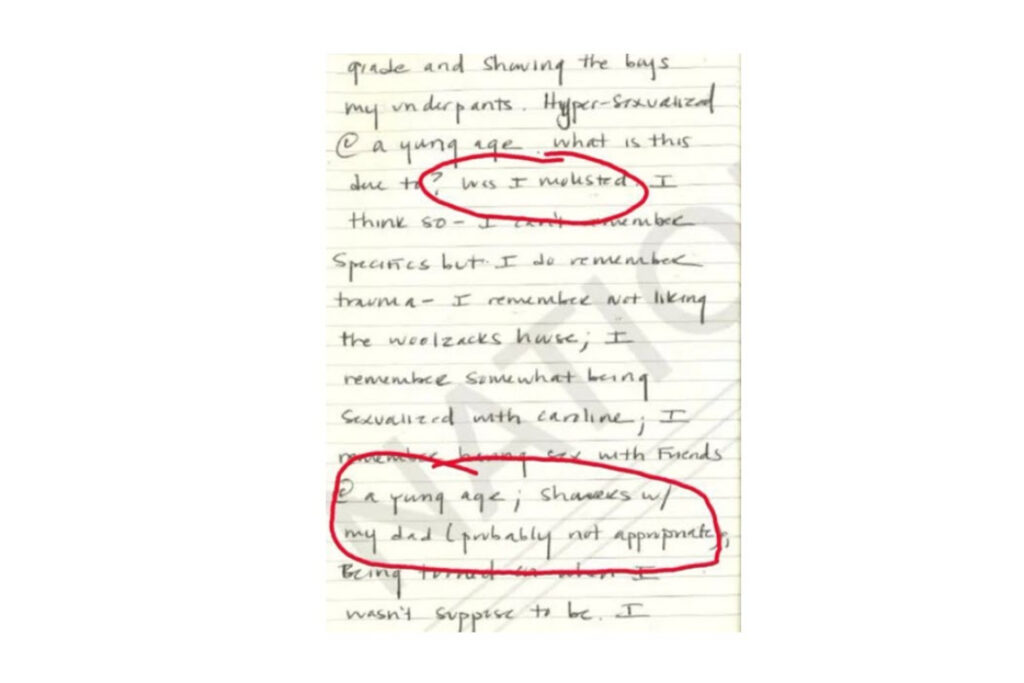 grade and Showing the boys
my underpants. Hyper-Sexualized
@ a yung age. What is this
due to? Was I molested. I
think so - I can't remember
Specifics but I do remember
trauma - I remember not liking
the woolzacks house; I
remember somewhat being
Sexualized with caroline; I
remember having sex with Friends
@ a yung age; showers w/
my dad (probably not appropriate),
Being turned on when I
wasn't suppose to be. I
NATIO